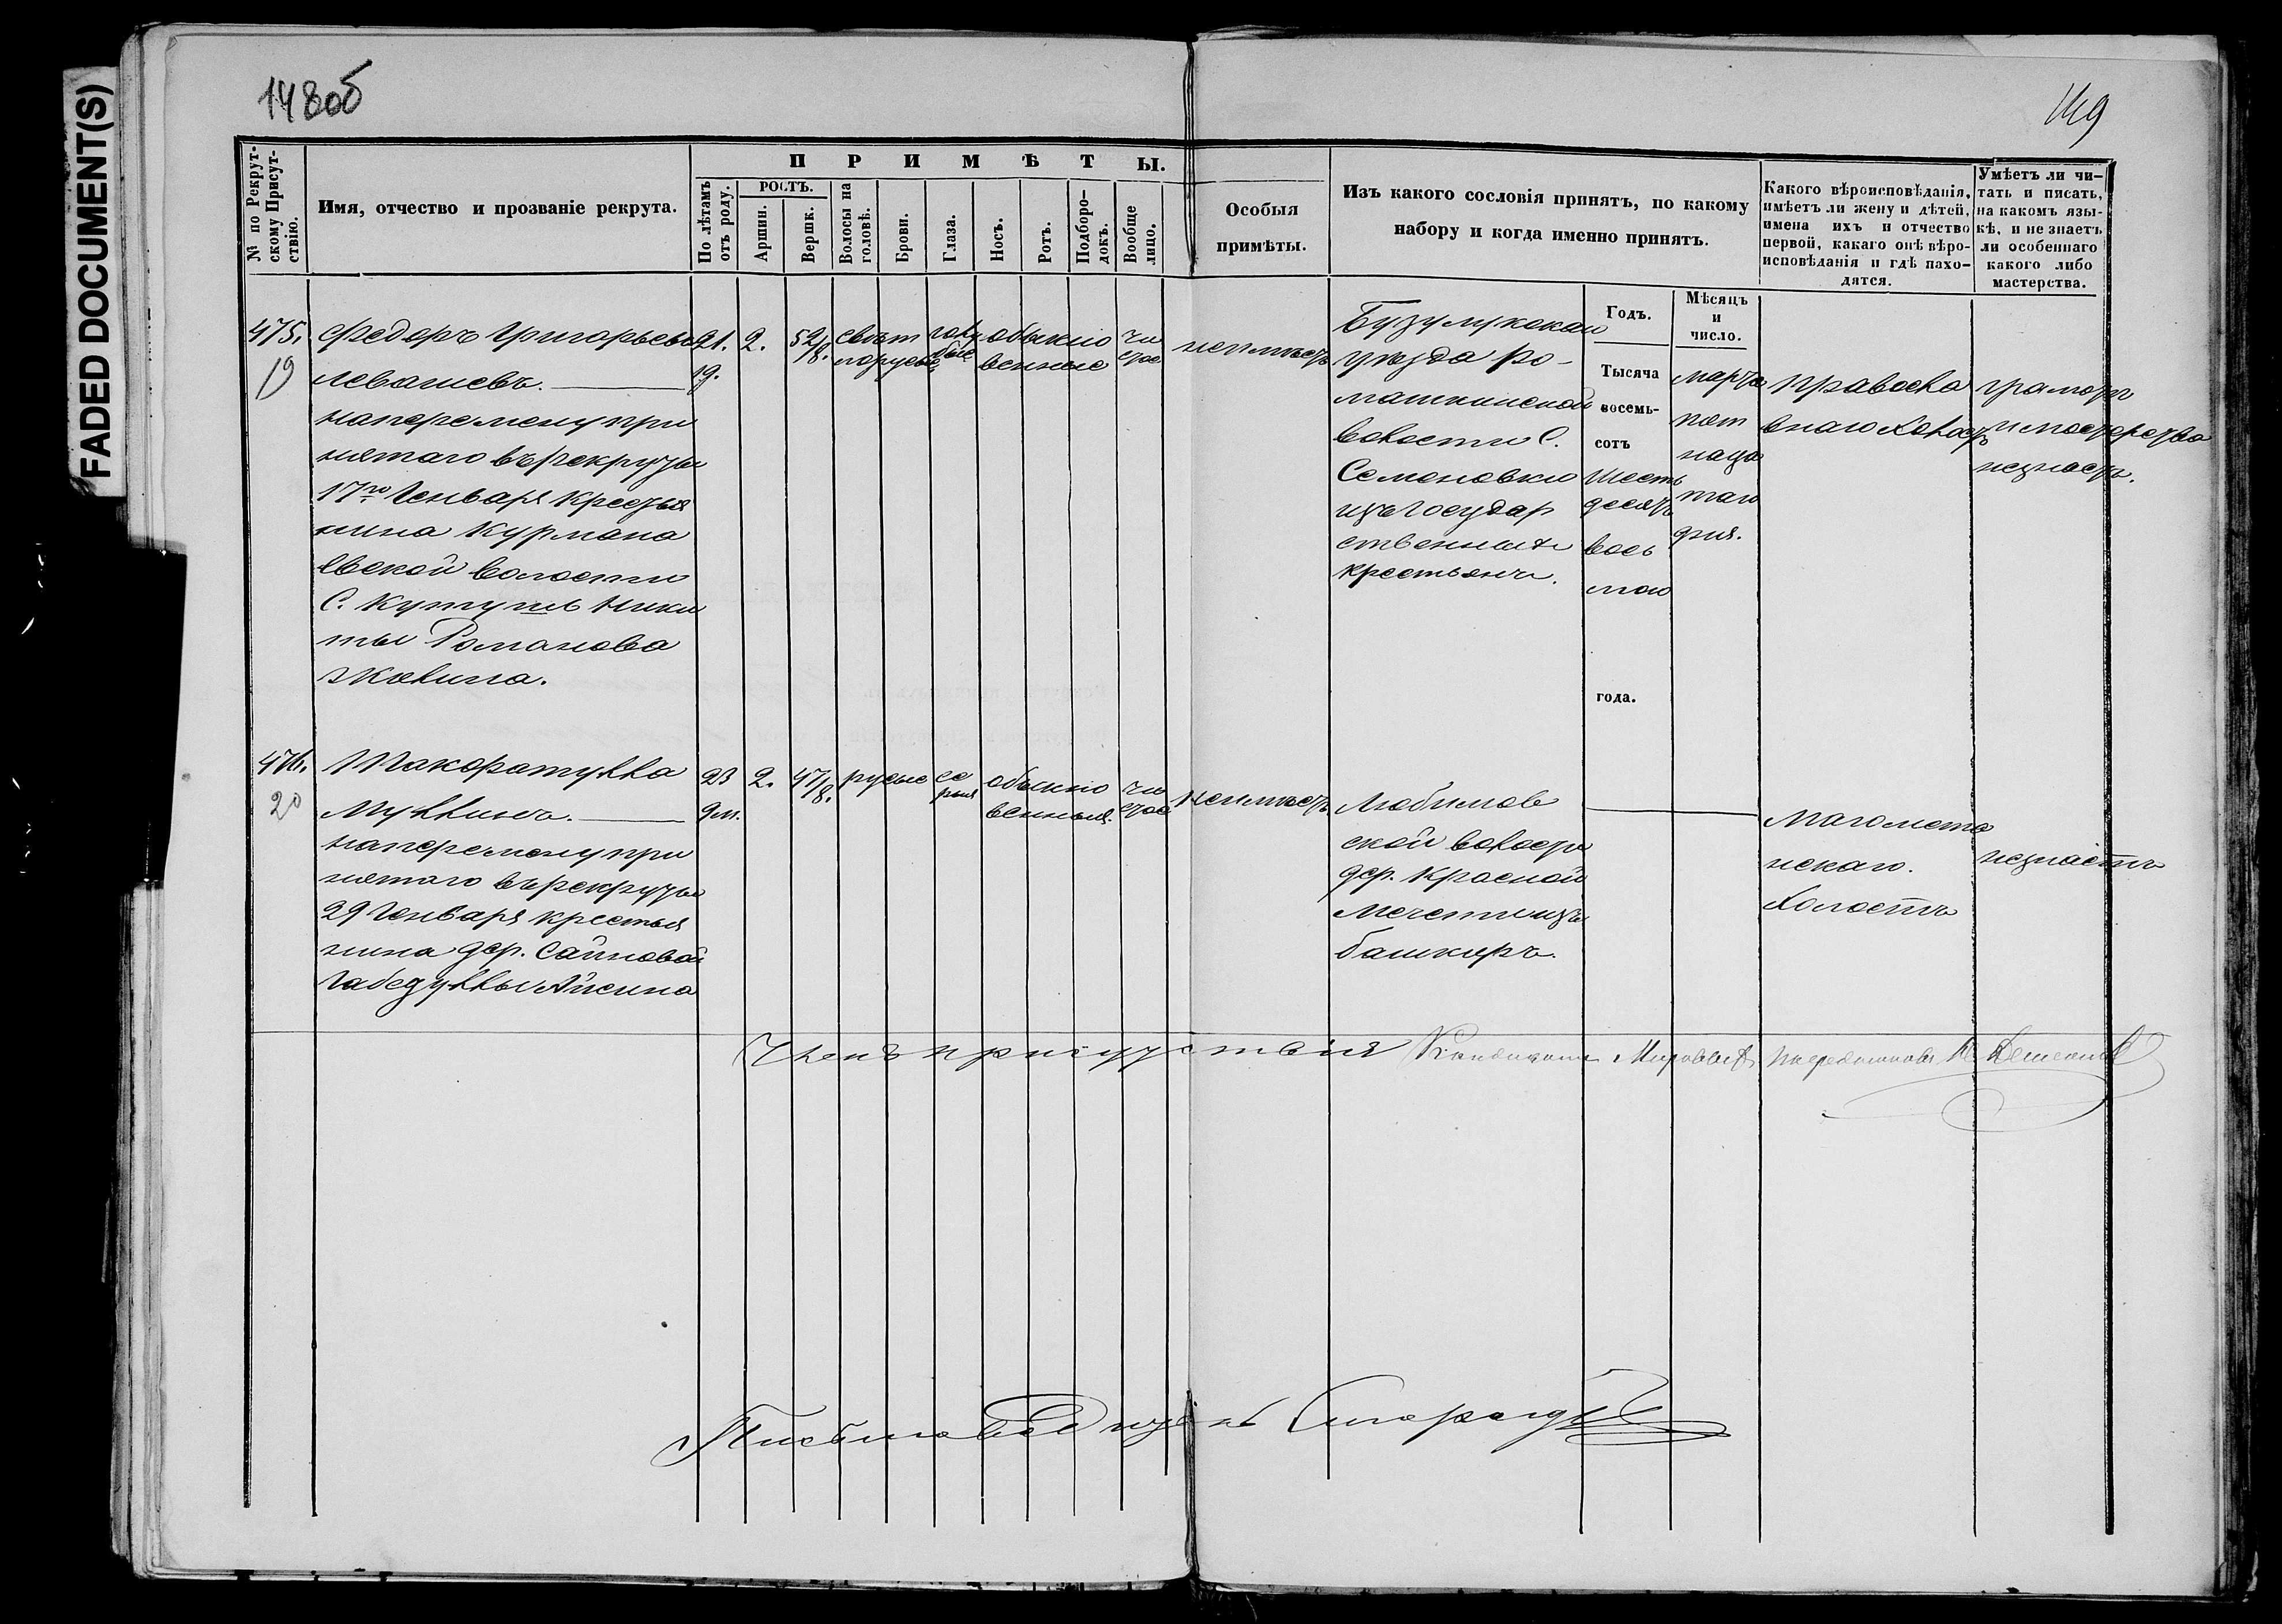 FADED DOCUMENT(S)
148об
149
№ по Рекрут-
скому Присут-
ствію.
Имя, отчество и прозваніе рекрута.
ПРИМѢТЫ.
По лѣтамъ
отъ роду.
РОСТЪ.
Аршин.
Вершк.
Волосы на
головѣ.
Брови.
Глаза.
Носъ.
Ротъ.
Подборо-
докъ.
Вообще
лицо.
Особыя
примѣты.
Изъ какого сословія принятъ, по какому
набору и когда именно принятъ.
Какого вѣроисповѣданія,
имѣетъ ли жену и дѣтей,
имена ихъ и отчество
первой, какаго онѣ вѣро-
исповѣданія и гдѣ нахо-
дятся.
Умѣетъ ли чи-
тать и писать,
на какомъ язы-
кѣ, и не знаетъ
ли особеннаго
какого либо
мастерства.
Годъ.
Мѣсяцъ
и
число.
475.
19
Федоръ Григорьевъ
Левашевъ.
наперемену при
нятаго въ рекруты
17го Генваря крестья
нина Курмана
евской волости
С. Кутушь Ники
ты Романова
Жилина.
21.
19.
2.
5 2/8.
свѣт
лорусые
голу
бые
обыкно
венные
чи
стое
неимѣетъ
Бузулукскаго
уѣзда Ро-
машкинской
волости С.
Семеновки
изъ Государ
ственныхъ
крестьянъ.
Тысяча
восемь-
сотъ
шесть
десятъ
вось
мого
года.
Марта
пят
надца
таго
дня.
Православ
наго Холостъ
грамоты
и мастерства
незнаетъ.
476.
20
Шакоратулла
Муллинъ.
наперемену при
нятаго въ рекруты
29 Генваря крестья
нина дер. Саиновой
Габедуллы Аисина
23
9 м.
2.
4 7/8.
русые
се
рыя
обыкно
венныя.
чи
стое
неимѣетъ
Любимов
ской волости
дер. Красной
Мечети изъ
башкиръ.
Магомета
нскаго.
Холостъ
незнаетъ
Членъ присутствія Кандидатъ Мировыхъ Посредниковъ
Письмоводитель